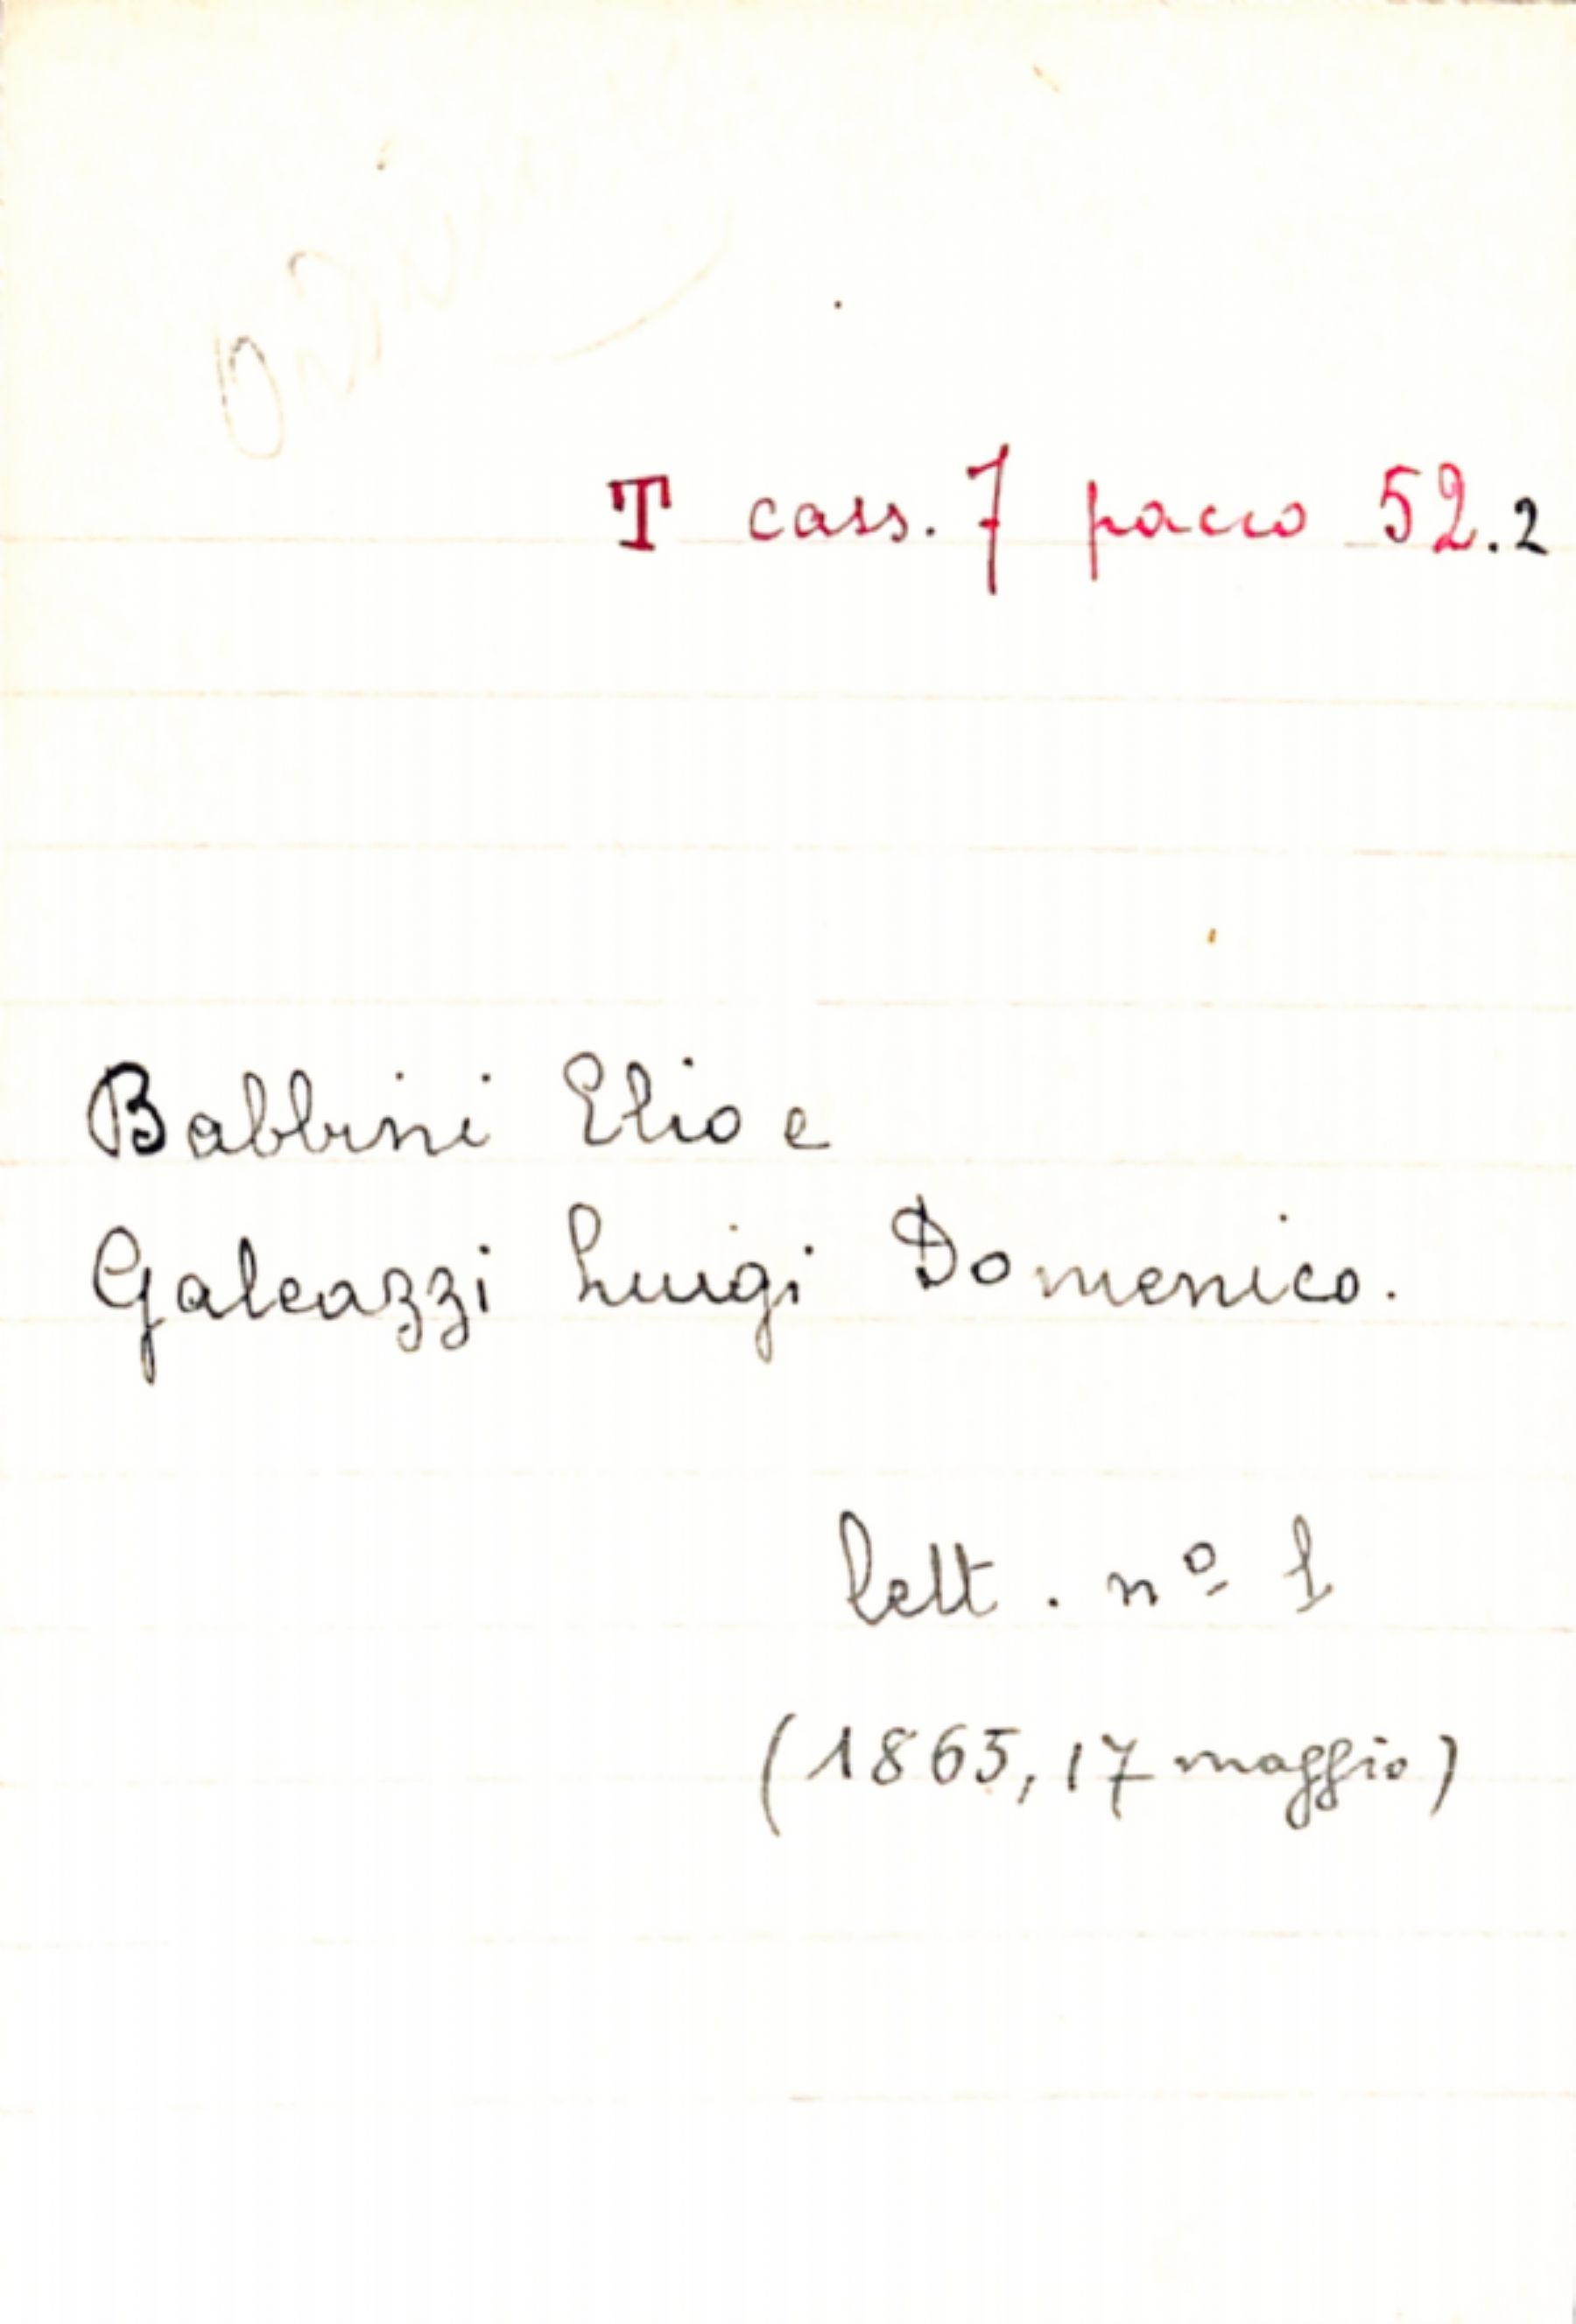 T cass. 7 pacco 52.2
Babbini Elio e
Galeazzi Luigi Domenico.
lett. nº 1
(1865, 17 maggio)